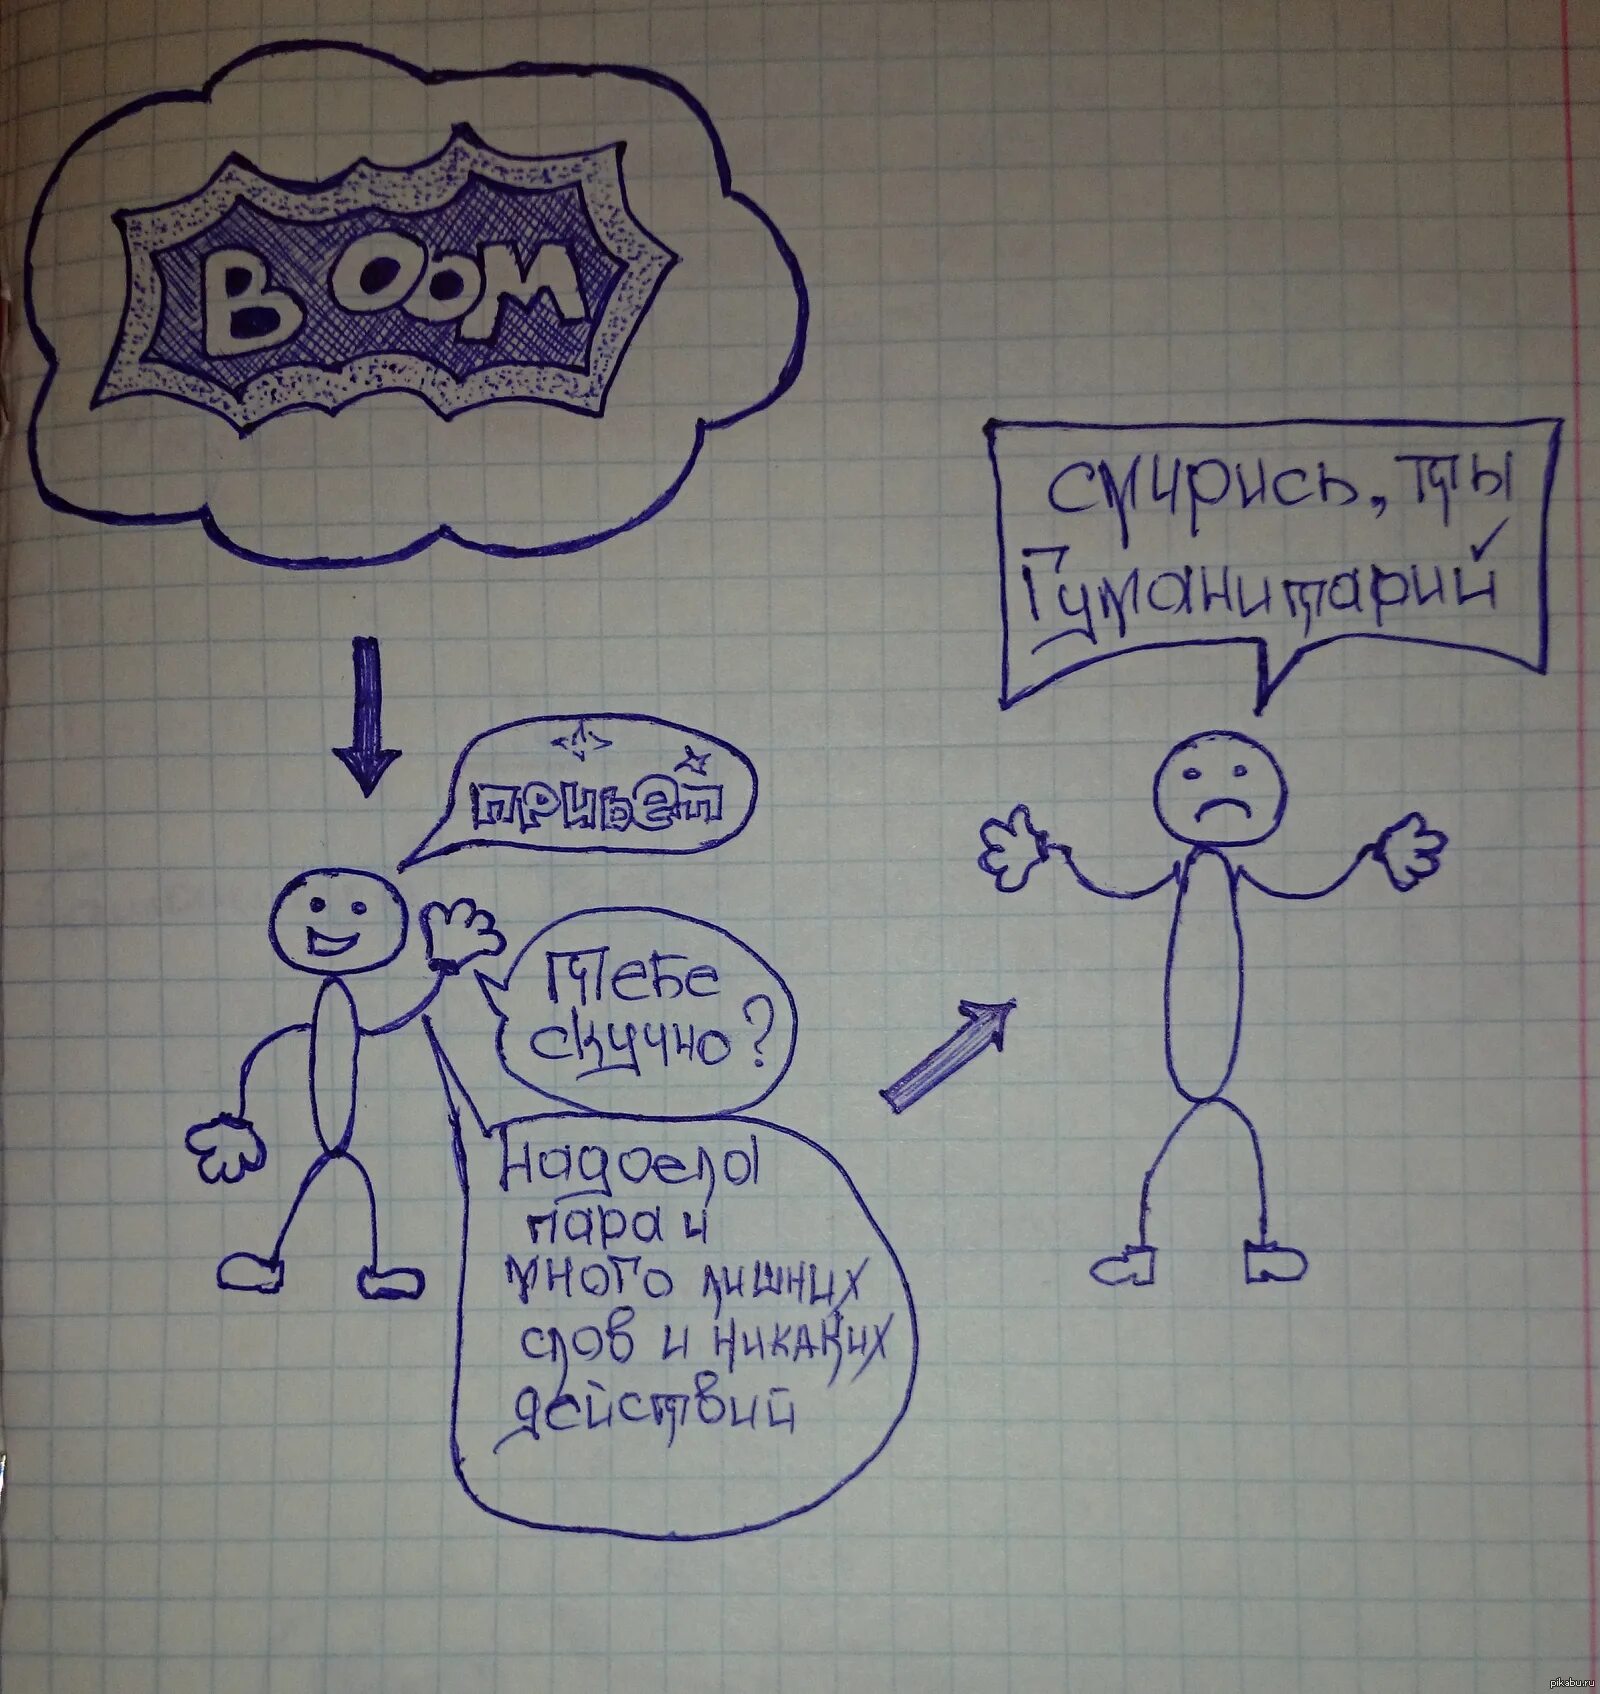 BOOM
привет
Тебе
скучно?
Надоела
пара и
много лишних
слов и никаких
действий
смирись, ты
Гуманитарий
pikabu.ru